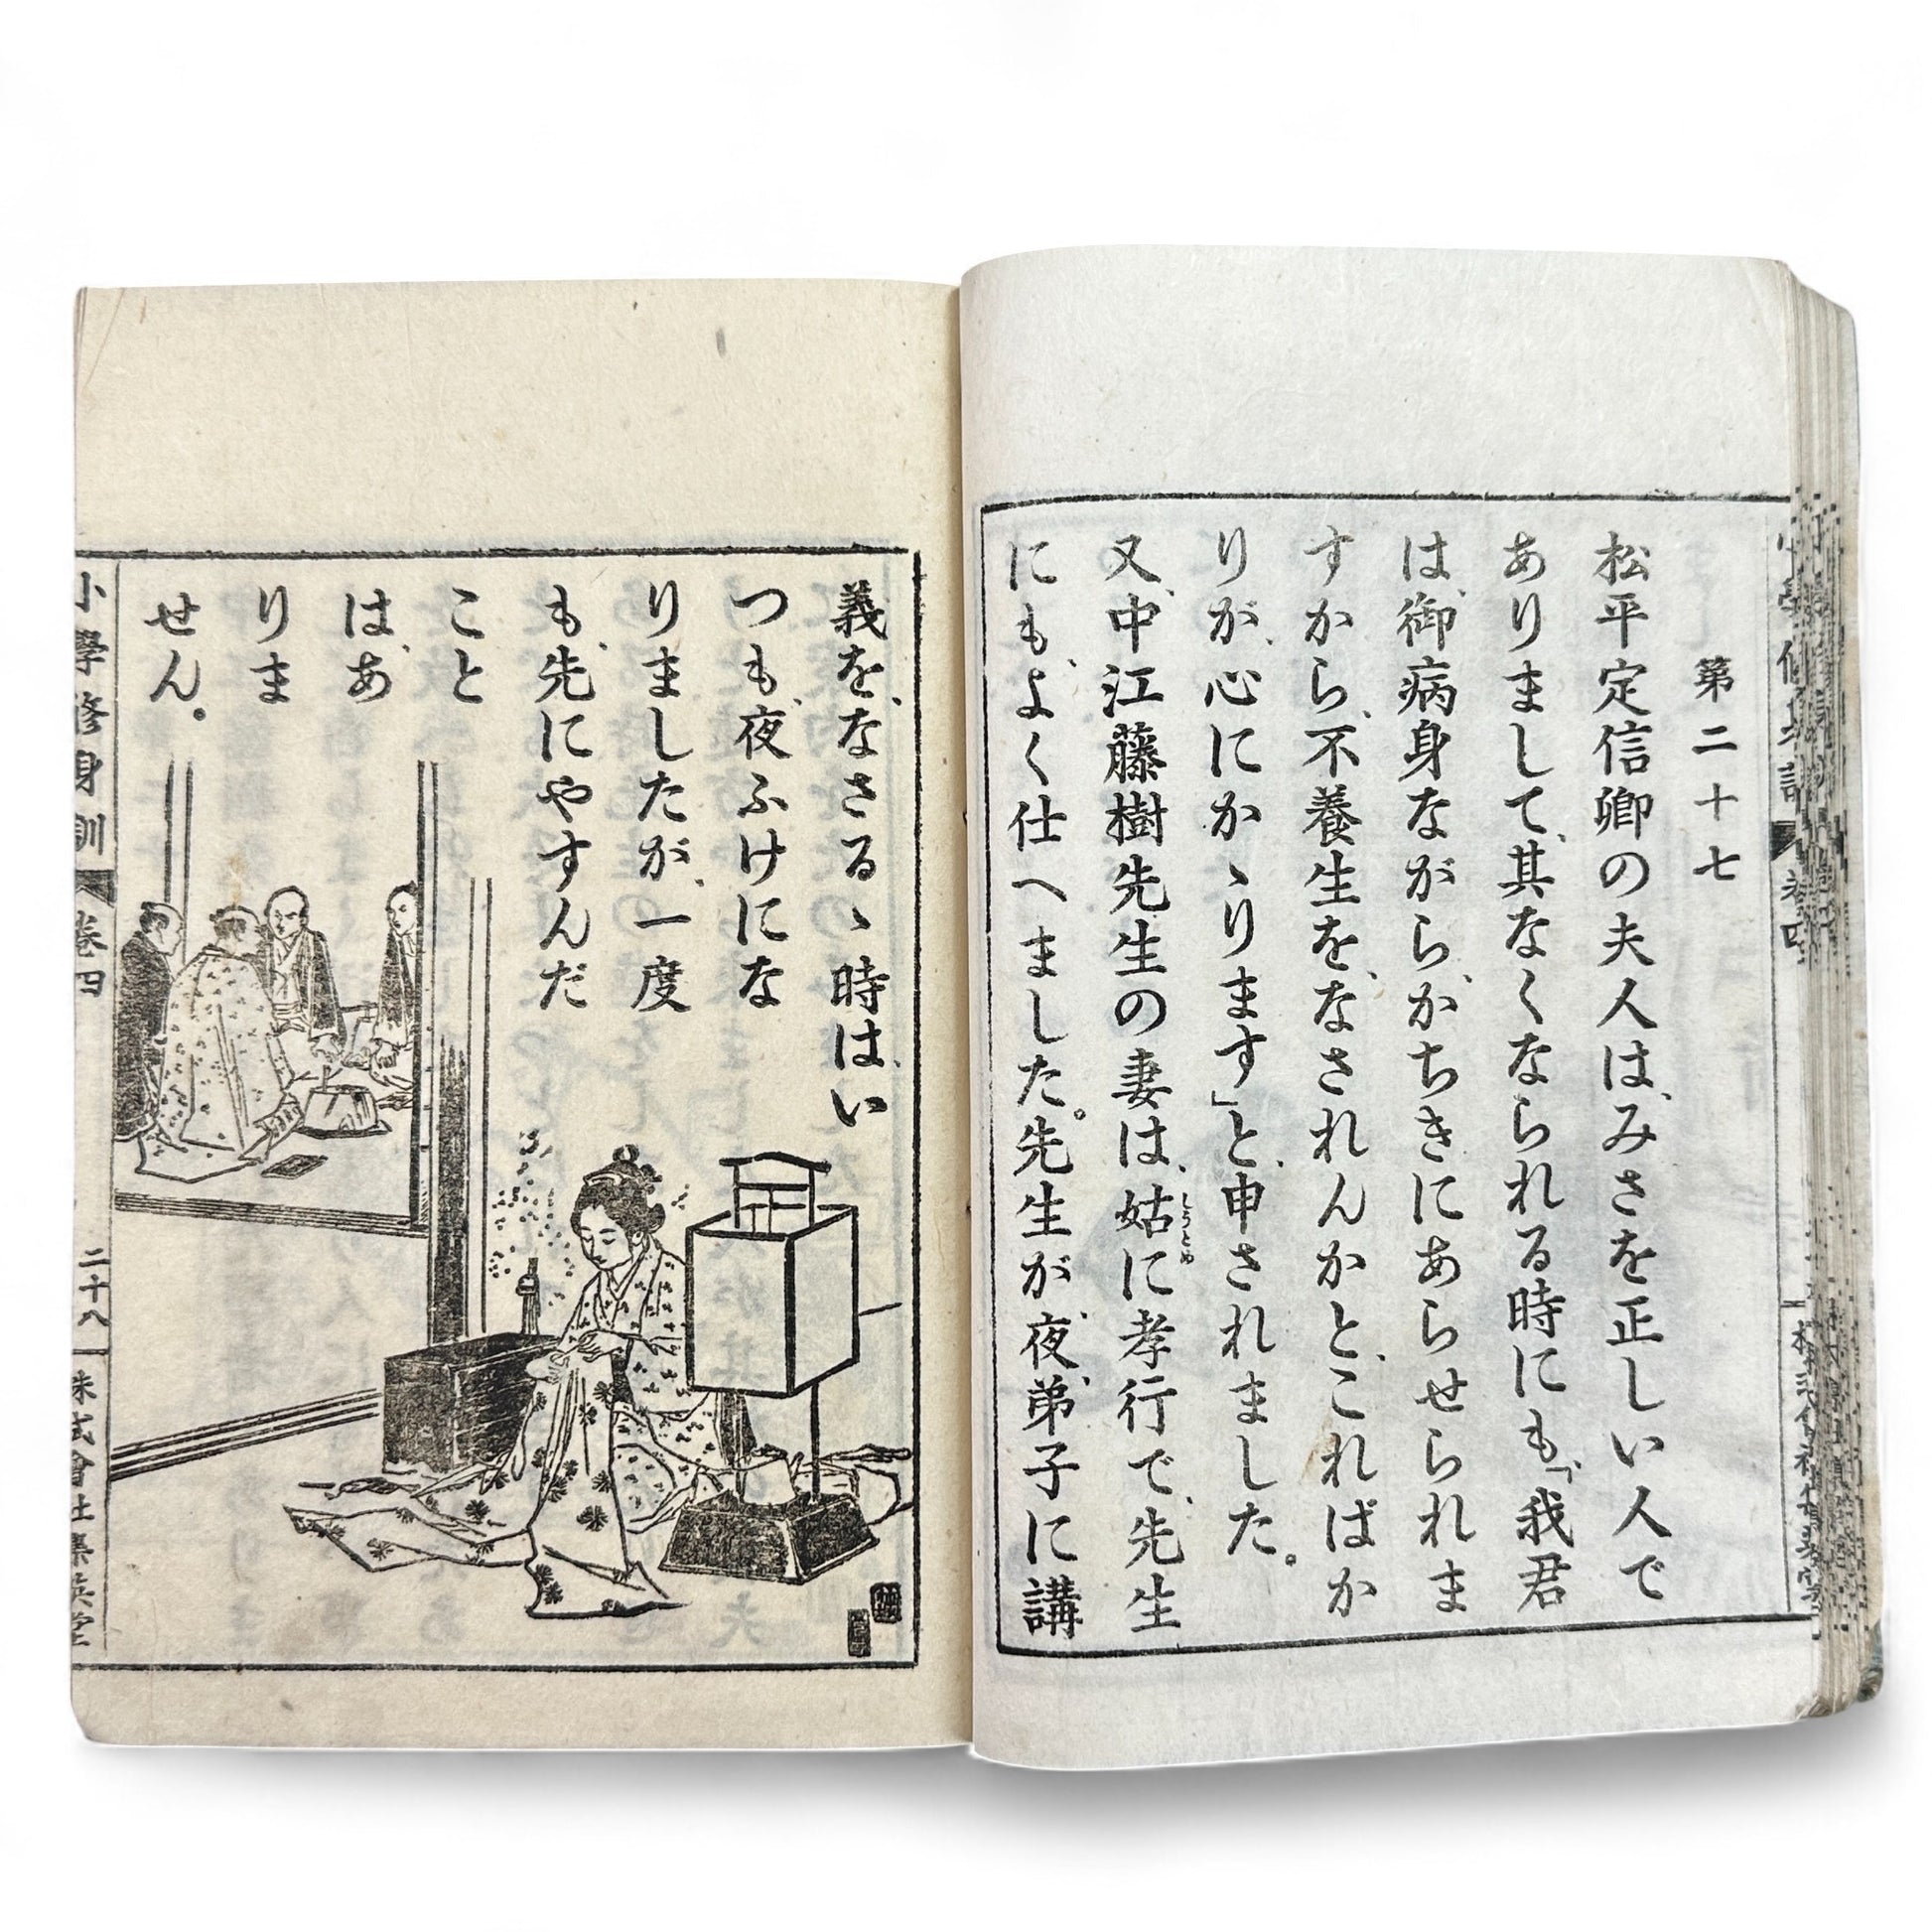 第二十七
松平定信卿の夫人は、みさを正しい人で
ありまして、其なくなられる時にも、「我君
は、御病身ながら、がちきにあらせられま
すから、不養生を、なされんかと、こればか
りが、心にかゝります」と、申されました。
又、中江藤樹先生の妻は、姑に孝行で、先生
しうとめ
にも、よく仕へました。先生が、夜、弟子に講
義を、なさるゝ時は、い
つも、夜ふけにな
りましたが、一度
も、先にやすんだ
こと
は、あ
りま
せん。
小學修身訓
卷四
二十八
株式會社集英堂